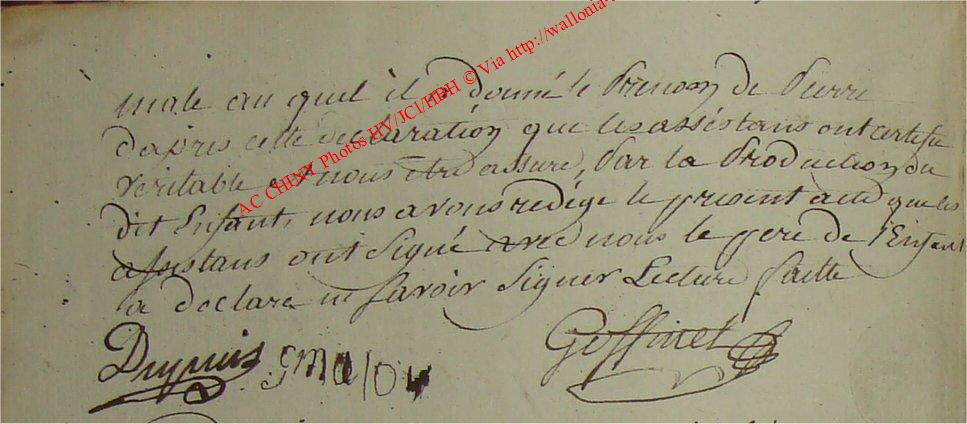 male au quel il a donné le Prenom de Pierre
d'apris cette declaration que les assistans ont certifie
veritable et nous être assure, Par la Production du
dit Enfant, nous avons redige le present acte que les
assistans ont Signé avec nous le pere de l'Enfant
a declare ne savoir Signer Lecture faitte
Dupuis gmalou Goffinet
AC CHINY Photos HV/JCl/HBH © Via http://wallonia